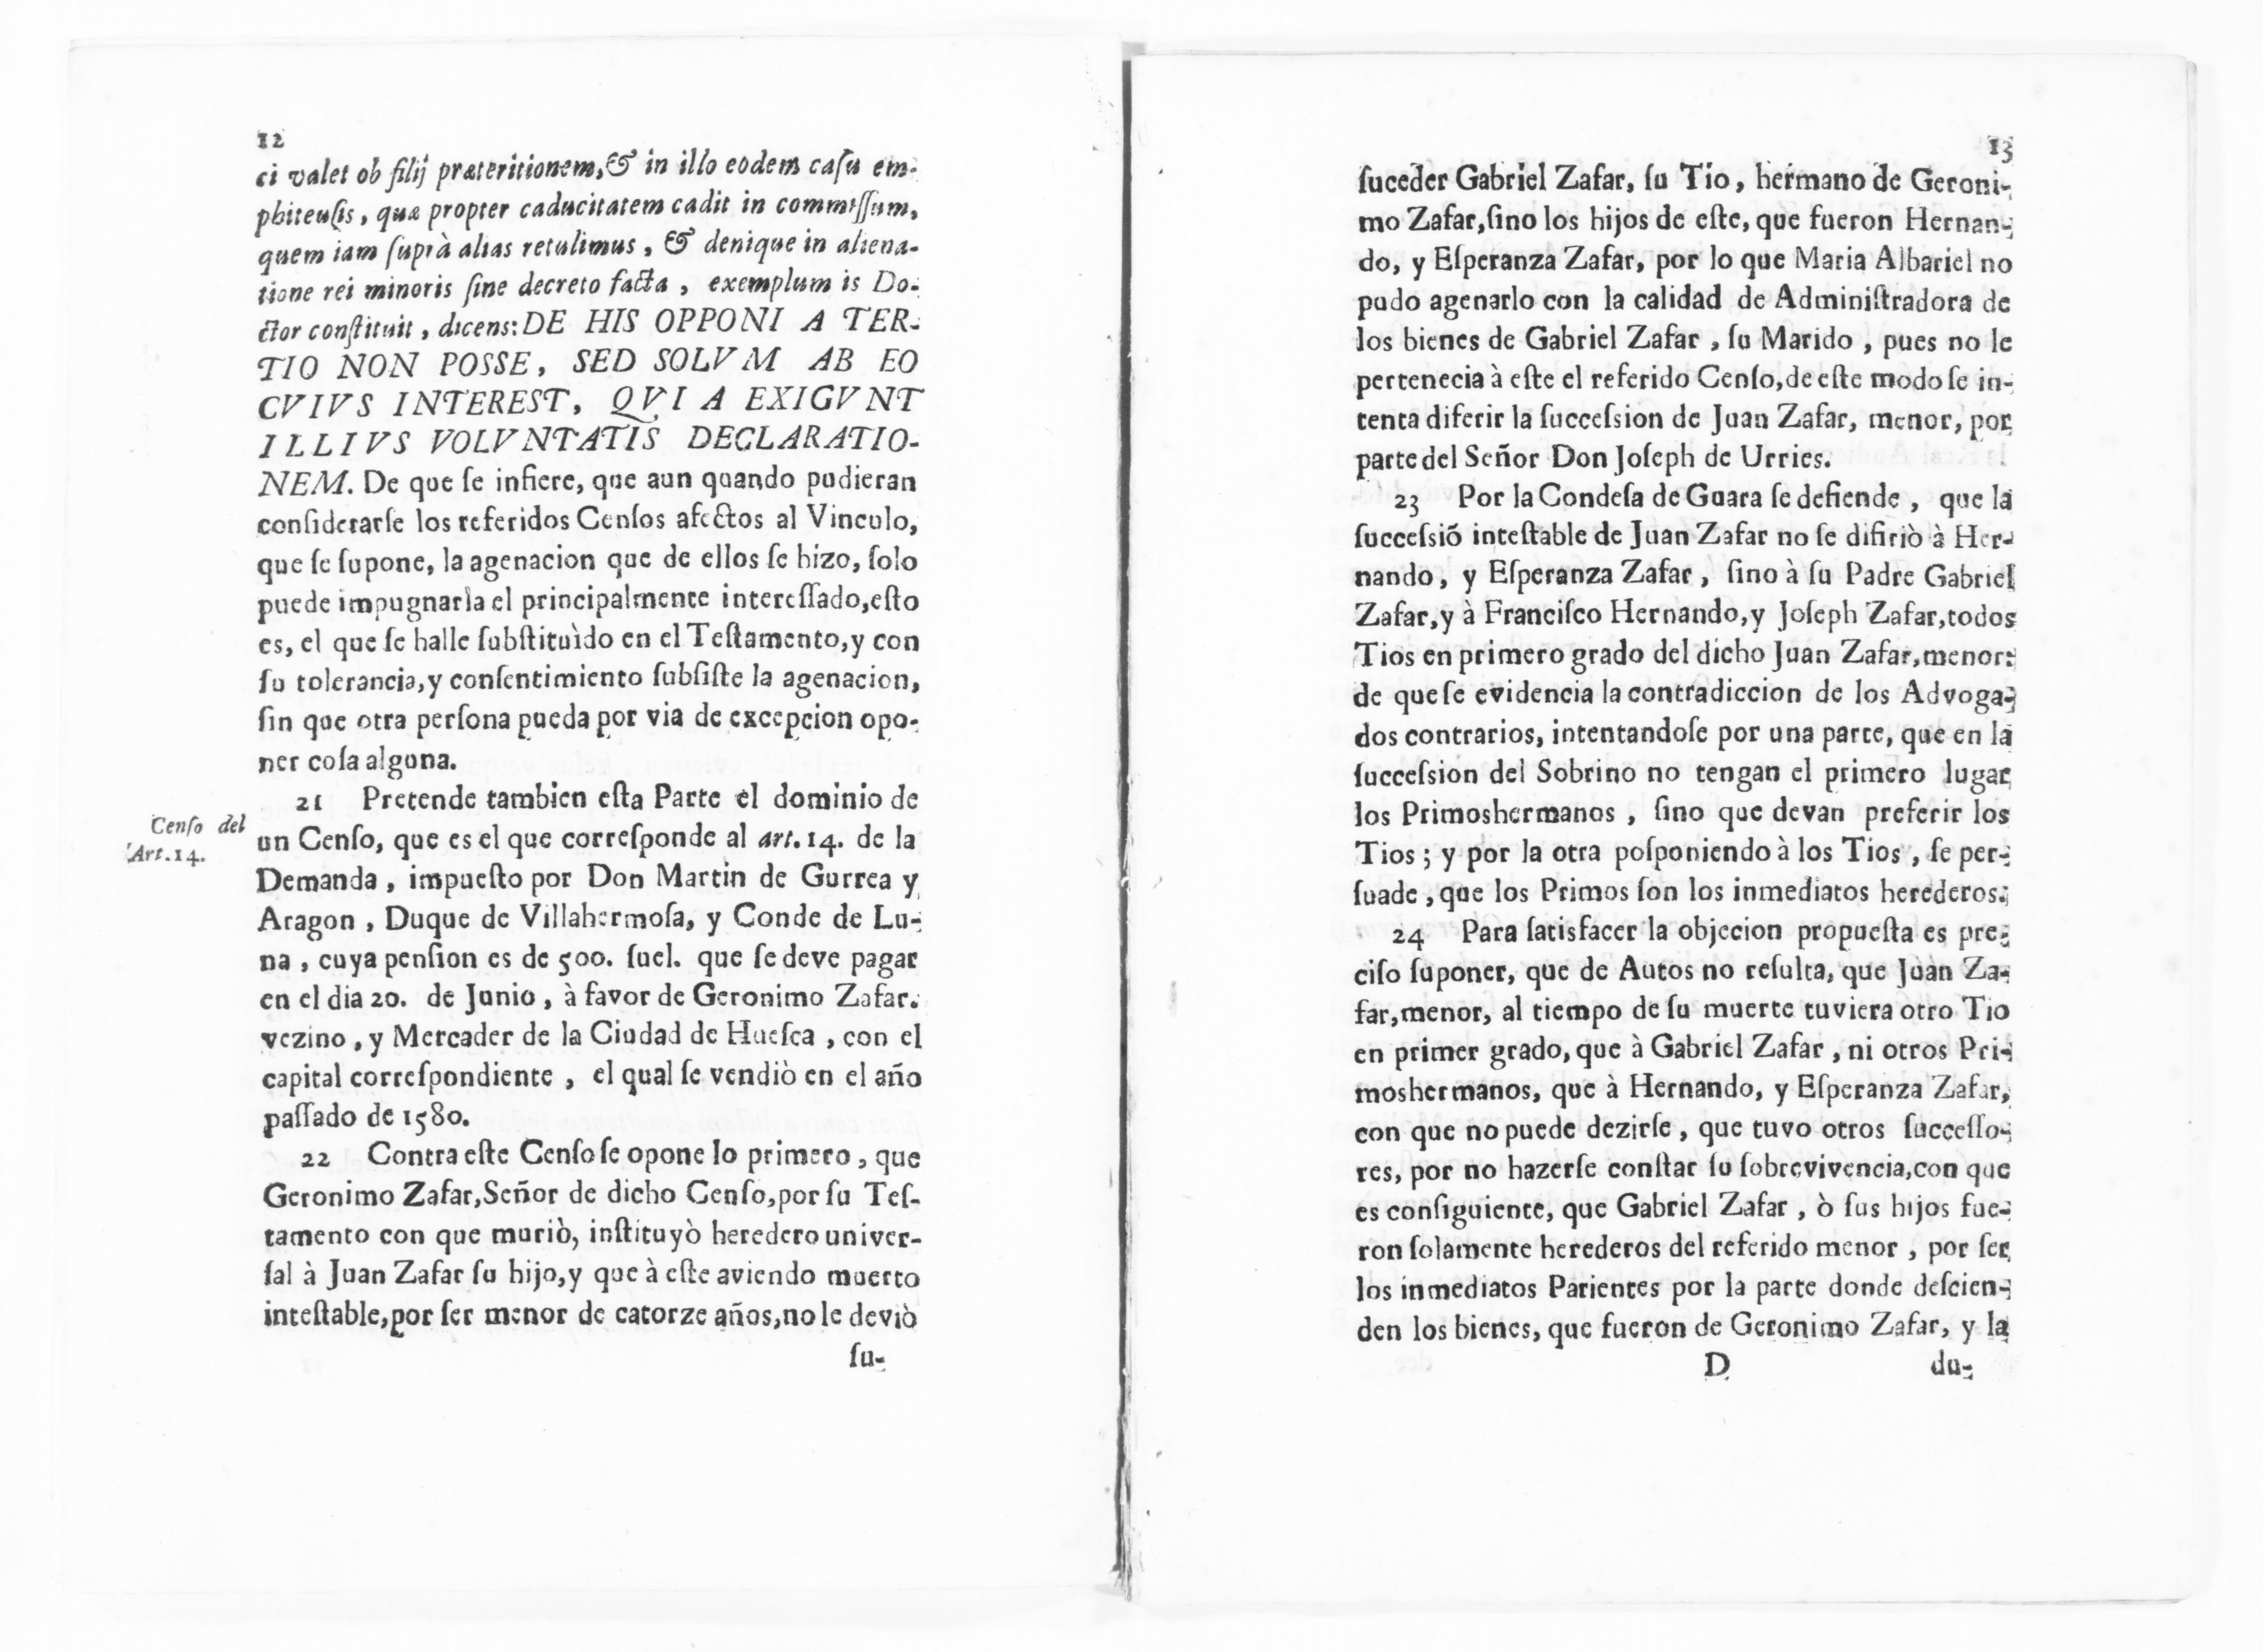 12
ci valet ob filij præteritionem, & in illo eodem caſu em-
phiteuſis, quæ propter caducitatem cadit in commiſſum,
quem iam ſuprà alias retulimus, & denique in aliena-
tione rei minoris ſine decreto facta, exemplum is Do-
ctor conſtituit, dicens: DE HIS OPPONI A TER-
TIO NON POSSE, SED SOLVM AB EO
CVIVS INTEREST, QVI A EXIGVNT
ILLIVS VOLVNTATIS DECLARATIO-
NEM. De que ſe infiere, que aun quando pudieran
conſiderarſe los referidos Cenſos afectos al Vinculo,
que ſe ſupone, la agenacion que de ellos ſe hizo, ſolo
puede impugnarla el principalmente intereſſado, eſto
es, el que ſe halle ſubſtituìdo en el Teſtamento, y con
ſu tolerancia, y conſentimiento ſubſiſte la agenacion,
ſin que otra perſona pueda por via de excepcion opo-
ner coſa alguna.
21 Pretende tambien eſta Parte el dominio de
Cenſo del
Art. 14.
un Cenſo, que es el que correſponde al art. 14. de la
Demanda, impueſto por Don Martin de Gurrea y
Aragon, Duque de Villahermoſa, y Conde de Lu-
na, cuya penſion es de 500. ſuel. que ſe deve pagar
en el dia 20. de Junio, à favor de Geronimo Zafar.
vezino, y Mercader de la Ciudad de Hueſca, con el
capital correſpondiente, el qual ſe vendiò en el año
paſſado de 1580.
22 Contra eſte Cenſo ſe opone lo primero, que
Geronimo Zafar, Señor de dicho Cenſo, por ſu Teſ-
tamento con que muriò, inſtituyò heredero univer-
ſal à Juan Zafar ſu hijo, y que à eſte aviendo muerto
inteſtable, por ſer menor de catorze años, no le deviò
ſu-
13
ſuceder Gabriel Zafar, ſu Tio, hermano de Geroni-
mo Zafar, ſino los hijos de eſte, que fueron Hernan-
do, y Eſperanza Zafar, por lo que Maria Albariel no
pudo agenarlo con la calidad de Adminiſtradora de
los bienes de Gabriel Zafar, ſu Marido, pues no le
pertenecia à eſte el referido Cenſo, de eſte modo ſe in-
tenta diferir la ſucceſsion de Juan Zafar, menor, por
parte del Señor Don Joſeph de Urries.
23 Por la Condeſa de Guara ſe defiende, que la
ſucceſsiõ inteſtable de Juan Zafar no ſe difiriò à Her-
nando, y Eſperanza Zafar, ſino à ſu Padre Gabriel
Zafar, y à Franciſco Hernando, y Joſeph Zafar, todos
Tios en primero grado del dicho Juan Zafar, menor:
de que ſe evidencia la contradiccion de los Advoga-
dos contrarios, intentandoſe por una parte, que en la
ſucceſsion del Sobrino no tengan el primero lugar
los Primoshermanos, ſino que devan preferir los
Tios; y por la otra poſponiendo à los Tios, ſe per-
ſuade, que los Primos ſon los inmediatos herederos.
24 Para ſatisfacer la objecion propueſta es pre-
ciſo ſuponer, que de Autos no reſulta, que Juan Za-
far, menor, al tiempo de ſu muerte tuviera otro Tio
en primer grado, que à Gabriel Zafar, ni otros Pri-
moshermanos, que à Hernando, y Eſperanza Zafar,
con que no puede dezirſe, que tuvo otros ſucceſſo-
res, por no hazerſe conſtar ſu ſobrevivencia, con que
es conſiguiente, que Gabriel Zafar, ò ſus hijos fue-
ron ſolamente herederos del referido menor, por ſer
los inmediatos Parientes por la parte donde deſcien-
den los bienes, que fueron de Geronimo Zafar, y la
D du-